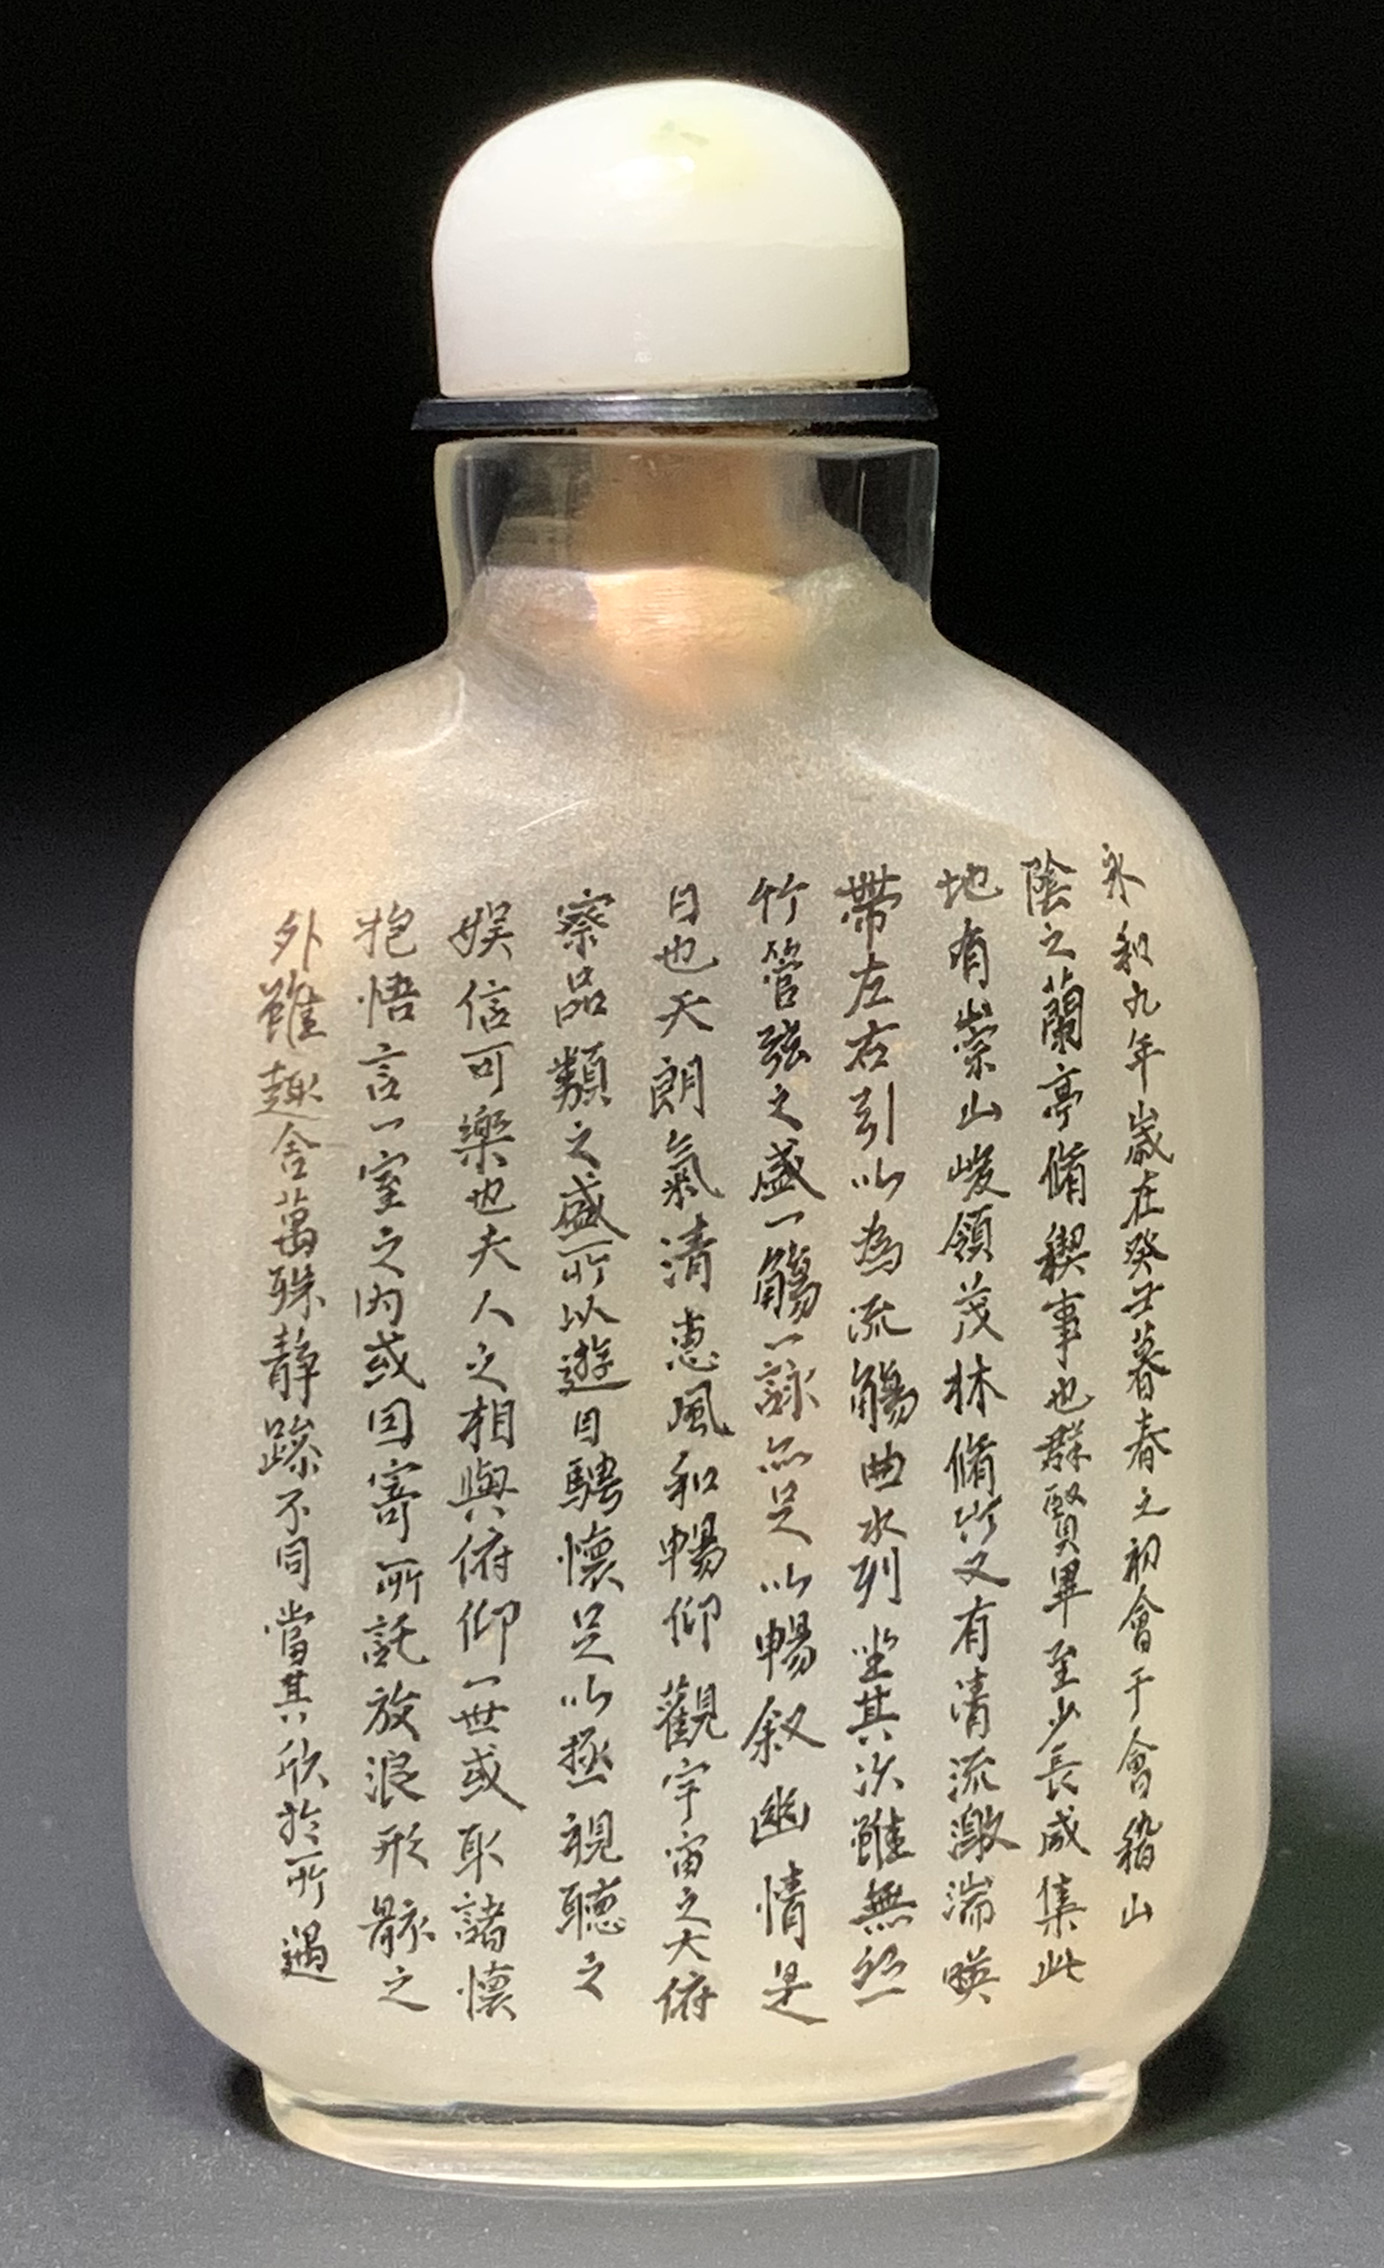 永和九年歲在癸丑暮春之初會于會稽山
陰之蘭亭脩稧事也群賢畢至少長咸集此
地有崇山峻領茂林脩竹又有清流激湍暎
帶左右引以為流觴曲水列坐其次雖無絲
竹管弦之盛一觴一詠亦足以暢叙幽情是
日也天朗氣清惠風和暢仰觀宇宙之大俯
察品類之盛所以遊目騁懷足以極視聽之
娛信可樂也夫人之相與俯仰一世或取諸懷
抱悟言一室之內或因寄所託放浪形骸之
外雖趣舍萬殊靜躁不同當其欣於所遇